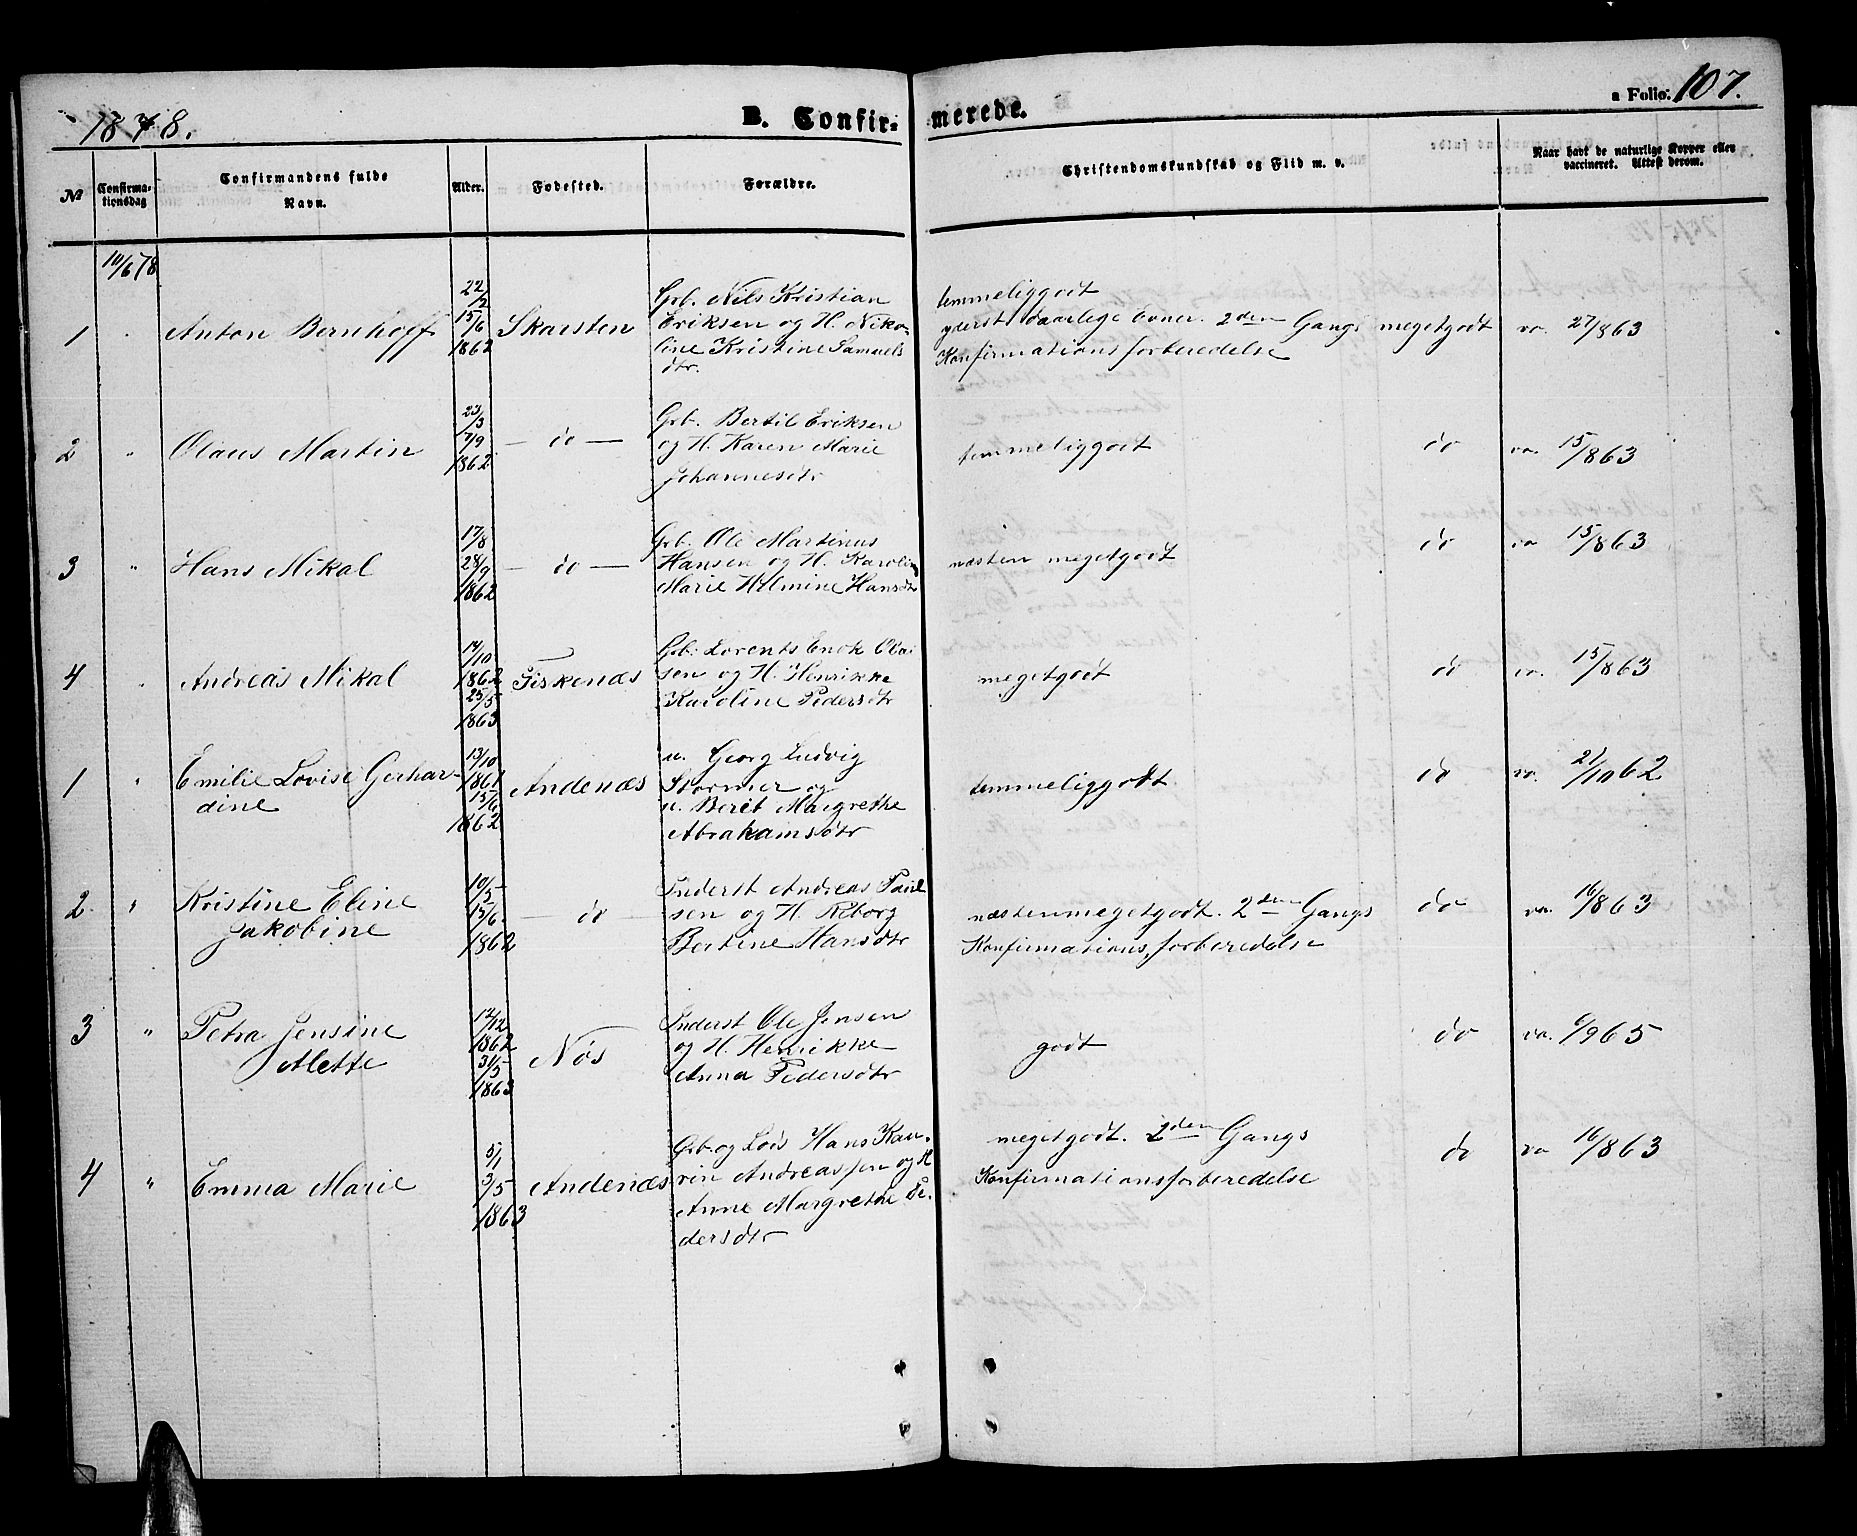 1878.
B. Confir-
merede.
a Folio. 107.
No
Confirma-
tionsdag
Confirmandens fulde
Navn.
Alder.
Fodested.
Forældre.
Christendomskundskab og Flid m. v.
Naar havt de naturlige Kopper eller
vaccineret. Attest derom.
10/6 78
1 " Anton Bernhoff 22/2 15/6 1862 Skarsten
Grb. Nils Kristian
Eriksen og H. Niko-
line Kristine Samuels
dtr.
temmeliggodt
yderst daarlige Evner. 2den Gangs
Konfirmationsforberedelse
megetgodt va. 27/863
2 " Olaus Martin 23/3 7/9 1862 – do –
Grb. Bertil Eriksen
og H. Karen Marie
Johannesdtr
temmeliggodt do va. 15/863
3 " Hans Mikal 17/8 28/9 1862 – do –
Grb. Ole Martinus
Hansen og H. Karolin
Marie Hilmine Hansdtr
næsten megetgodt do va 15/863
4 " Andreas Mikal 14/10 1862 25/5 1863 Fiskenæs
Grb. Lorents Enok Olai
sen og H. Henrikke
Karoline Pedersdtr
megetgodt do va. 15/863
1 " Emilie Lovise Gerhar-
dine
13/10 1861 15/6 1862 Andenæs
u. Georg Ludvig
Stormer og
u. Berit Margrethe
Abrahamsdtr
temmeliggodt do va. 21/1062
2 " Kristine Eline
Jakobine
10/5 15/6 1862 – do –
Inderst Andreas Paul
sen og H. Reborg
Bertine Hansdtr
næstenmegetgodt. 2den Gangs
Konfirmationsforberedelse
do va. 16/863
3 " Petra Jensine
Alette
12/12 1862 31/5 1863 Nøs
Inderst Ole Jensen
og H. Henrikke
Anna Pedersdtr
godt do va. 6/965
4 " Emma Marie 5/1 3/5 1863 Andenæs
Grb. og Lods Hans Kau-
rin Andreassen og H
Anne Margrethe Pe-
dersdtr
megetgodt. 2den Gangs
Konfirmationsforberedelse
do va 16/863